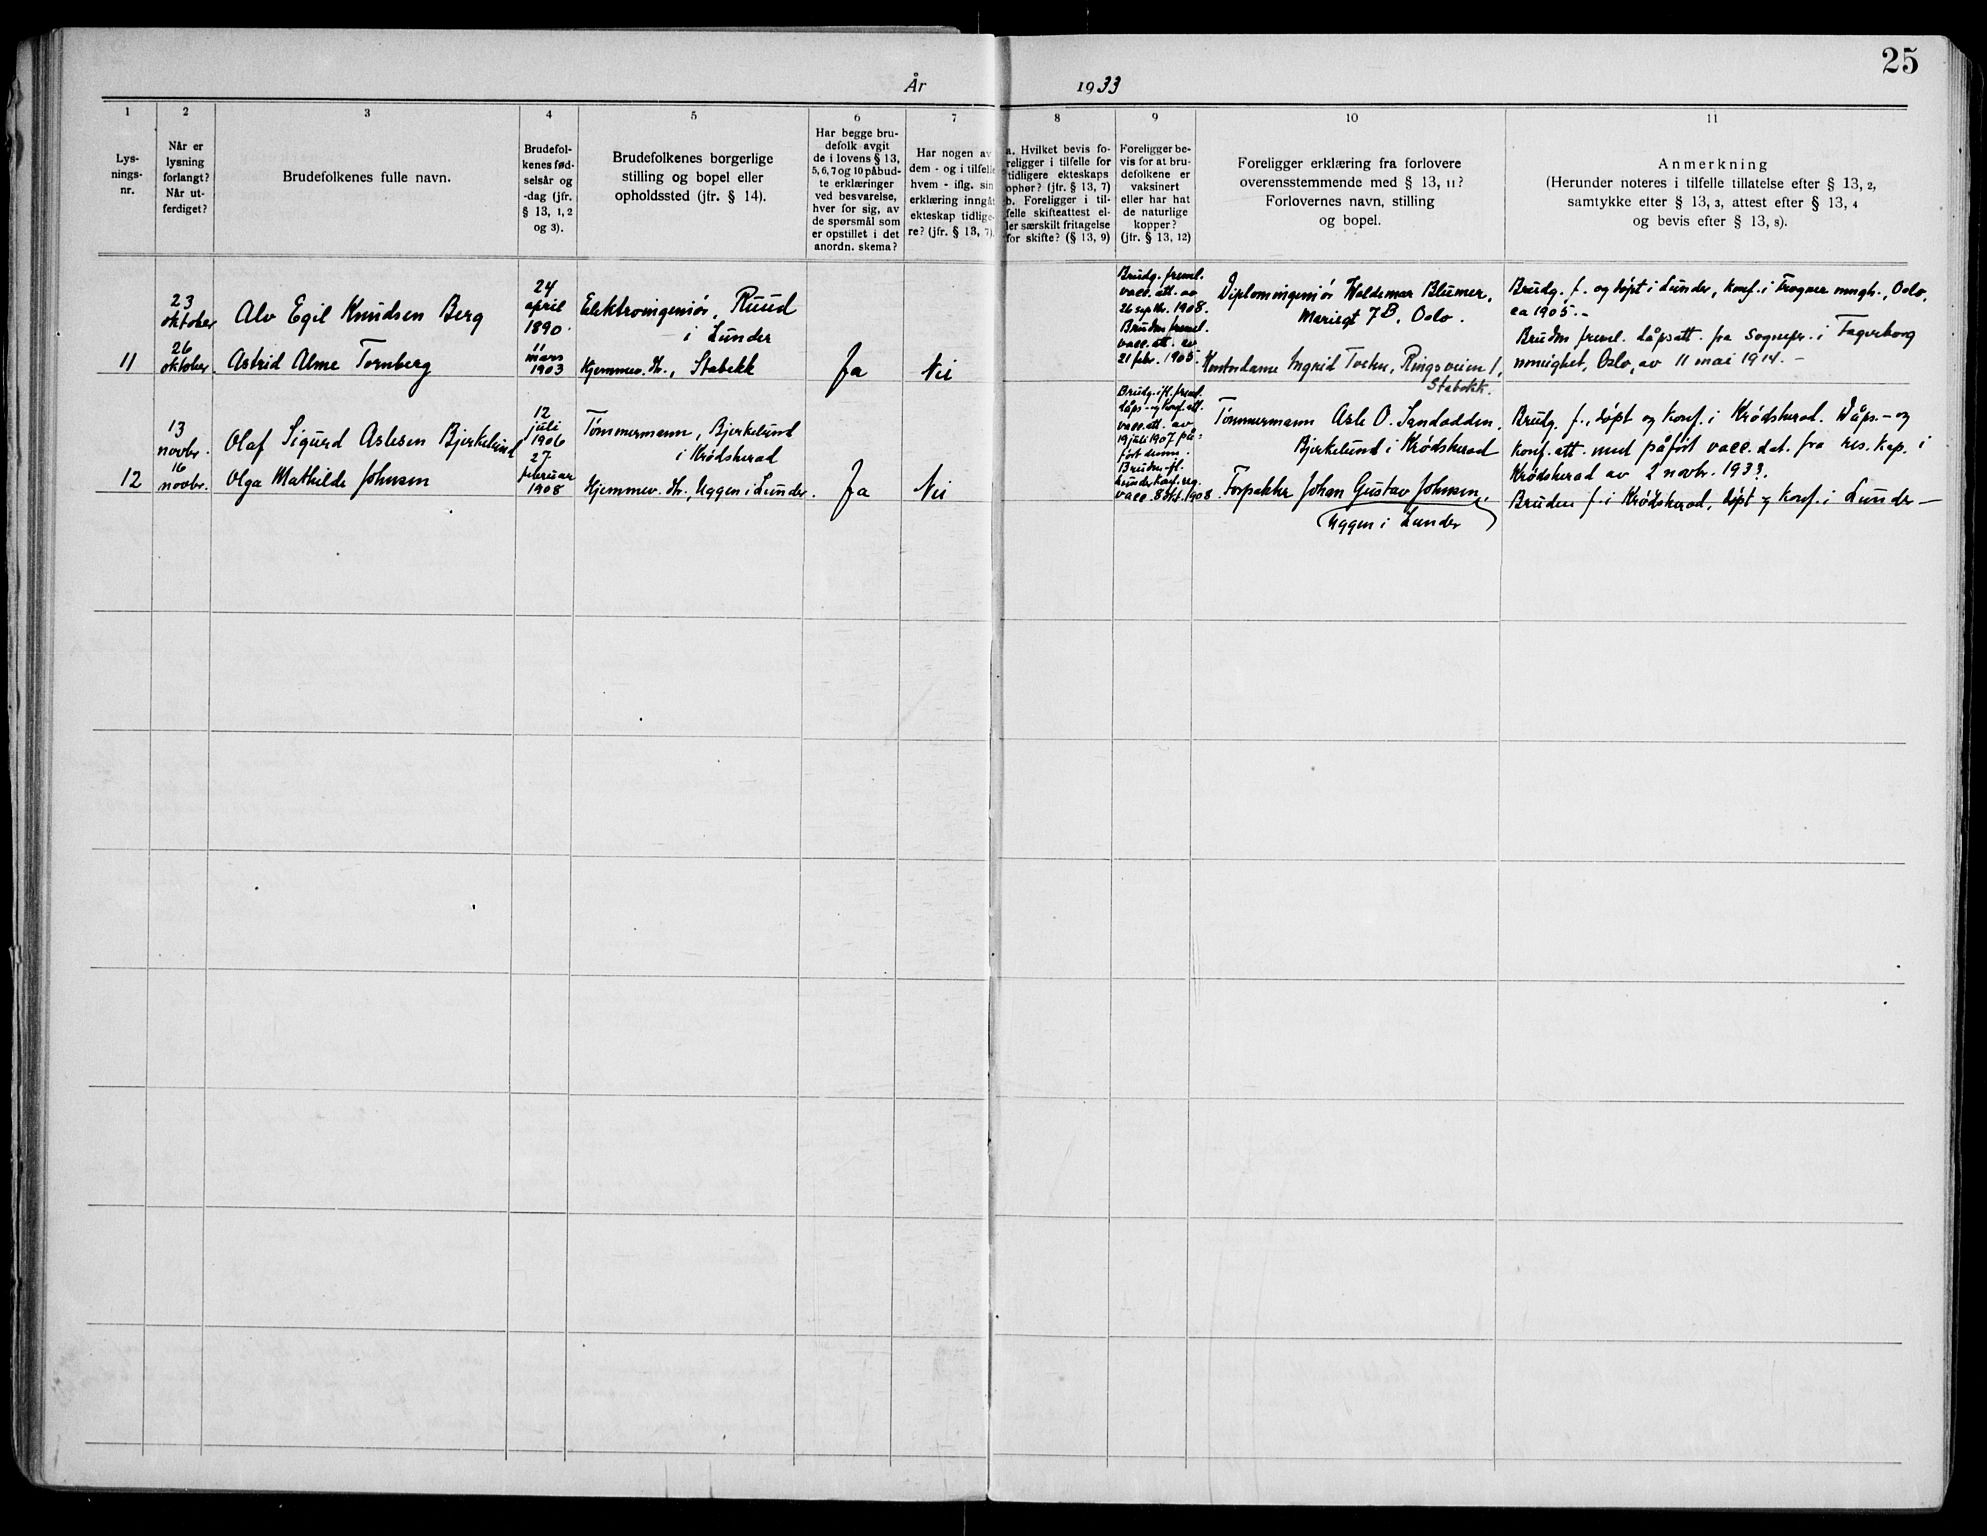 25
År 1933
1
2
3
4
5
6
7
8
9
10
11
Lys-
nings-
nr.
Når er
lysning
forlangt?
Når ut-
ferdiget?
Brudefolkenes fulle navn.
Brudefol-
kenes fød-
selsår og
-dag (jfr.
§ 13, 1, 2
og 3).
Brudefolkenes borgerlige
stilling og bopel eller
opholdssted (jfr. § 14).
Har begge bru-
defolk avgit
de i lovens § 13,
5, 6, 7 og 10 påbud-
te erklæringer
ved besvarelse,
hver for sig, av
de spørsmål som
er opstillet i det
anordn. skema?
Har nogen av
dem - og i tilfelle
hvem - iflg. sin
erklæring inngåt
ekteskap tidlige-
re? (jfr. § 13, 7).
a. Hvilket bevis fo-
religger i tilfelle for
tidligere ekteskaps
ophør? (jfr. § 13, 7)
b. Foreligger i til-
felle skifteattest el-
ler særskilt fritagelse
for skifte? (§ 13, 9)
Foreligger be-
vis for at bru-
defolkene er
vaksinert
eller har hat
de naturlige
kopper?
(jfr. § 13, 12)
Foreligger erklæring fra forlovere
overensstemmende med § 13, 11?
Forlovernes navn, stilling
og bopel.
Anmerkning
(Herunder noteres i tilfelle tillatelse efter § 13, 2,
samtykke efter § 13, 3, attest efter § 13, 4
og bevis efter § 13, 8).
11
23
oktober
26
oktober.
Alv Egil Knudsen Berg
Astrid Alme Tornberg
24
april
1890.
11
mars
1903
Elektroingeniør, Ruud
i Lunder
Hjemmev. Hr., Stabekk
Ja
Nei
Brudg. freml.
vacc. att. av
26 septbr. 1908.
Bruden freml.
vacc. att. av
21 febr. 1905.
Diplomingeniør Waldemar Blumer,
Mariegt 7B, Oslo.
Kontordame Ingrid, Ringsveien 1,
Stabekk.
Brudg. f. og døpt i Lunder, konf. i Frogner mngh., Oslo,
ca 1905.-
Bruden freml. dåpsatt. fra sognepr. i Fagerborg
menighet, Oslo, av 11 mai 1914.-
12
13
novbr.
16
novbr.
Olaf Sigurd Aslesen Bjerkelund
Olga Mathilde Johnsen
12
juli
1906
27
februar
1908
Tømmermann, Bjerkelund
i Krødsherad
Hjemmev. Hr., Uggen i Lunder.
Ja
Nei
Brudg. ifl. freml.
dåps- og konf. att.
vacc. att. av
19 juli 1907 på-
ført denne.
Bruden ifl.
Lunder konf. reg.
vacc. 8 okt. 1908.
Tømmermann Asle O. Sandodden,
Bjerkelund i Krødsherad
Forpakter Johan Gustav Johnsen,
Uggen i Lunder
Brudg. f., døpt og konf. i Krødsherad. Dåps- og
konf. att. med påført vacc. dat. fra res. kap. i
Krødsherad av 2 novbr. 1933.
Bruden f. i Krødsherad, døpt og konf. i Lunder -